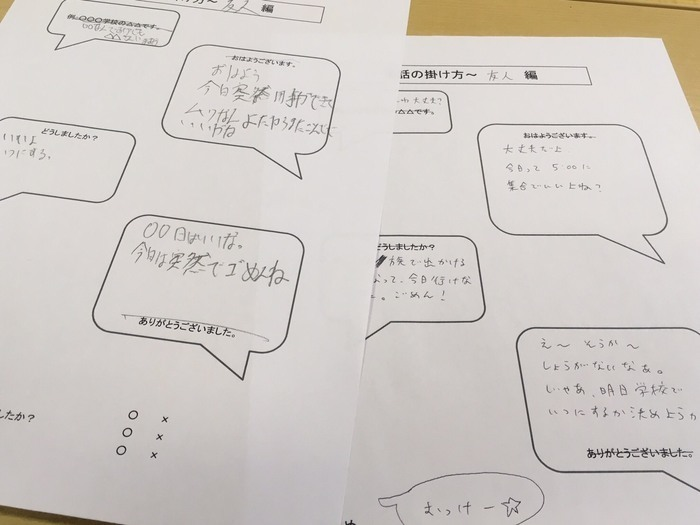 け方～ 友人 編
例、〇〇〇学校の△△です。
おはようございます。
おはよう
今日突然用事ができて
いいかね
どうしましたか？
いいよ
いつにする。
〇〇日はいいな。
今日は突然でゴめんね
ありがとうございました。
したか？
〇 ×
〇 ×
〇 ×
話の掛け方～ 友人 編
今大丈夫？
△△です。
おはようございます。
大丈夫だよ
今日って 5:00に
集合でいいよね？
どうしましたか？
族で出かける
なって、今日行けな
。ごめん！
え～ そうか～
しょうがないなぁ。
じゃあ、明日学校で
いつにするか決めようか
ありがとうございました。
むっけー☆